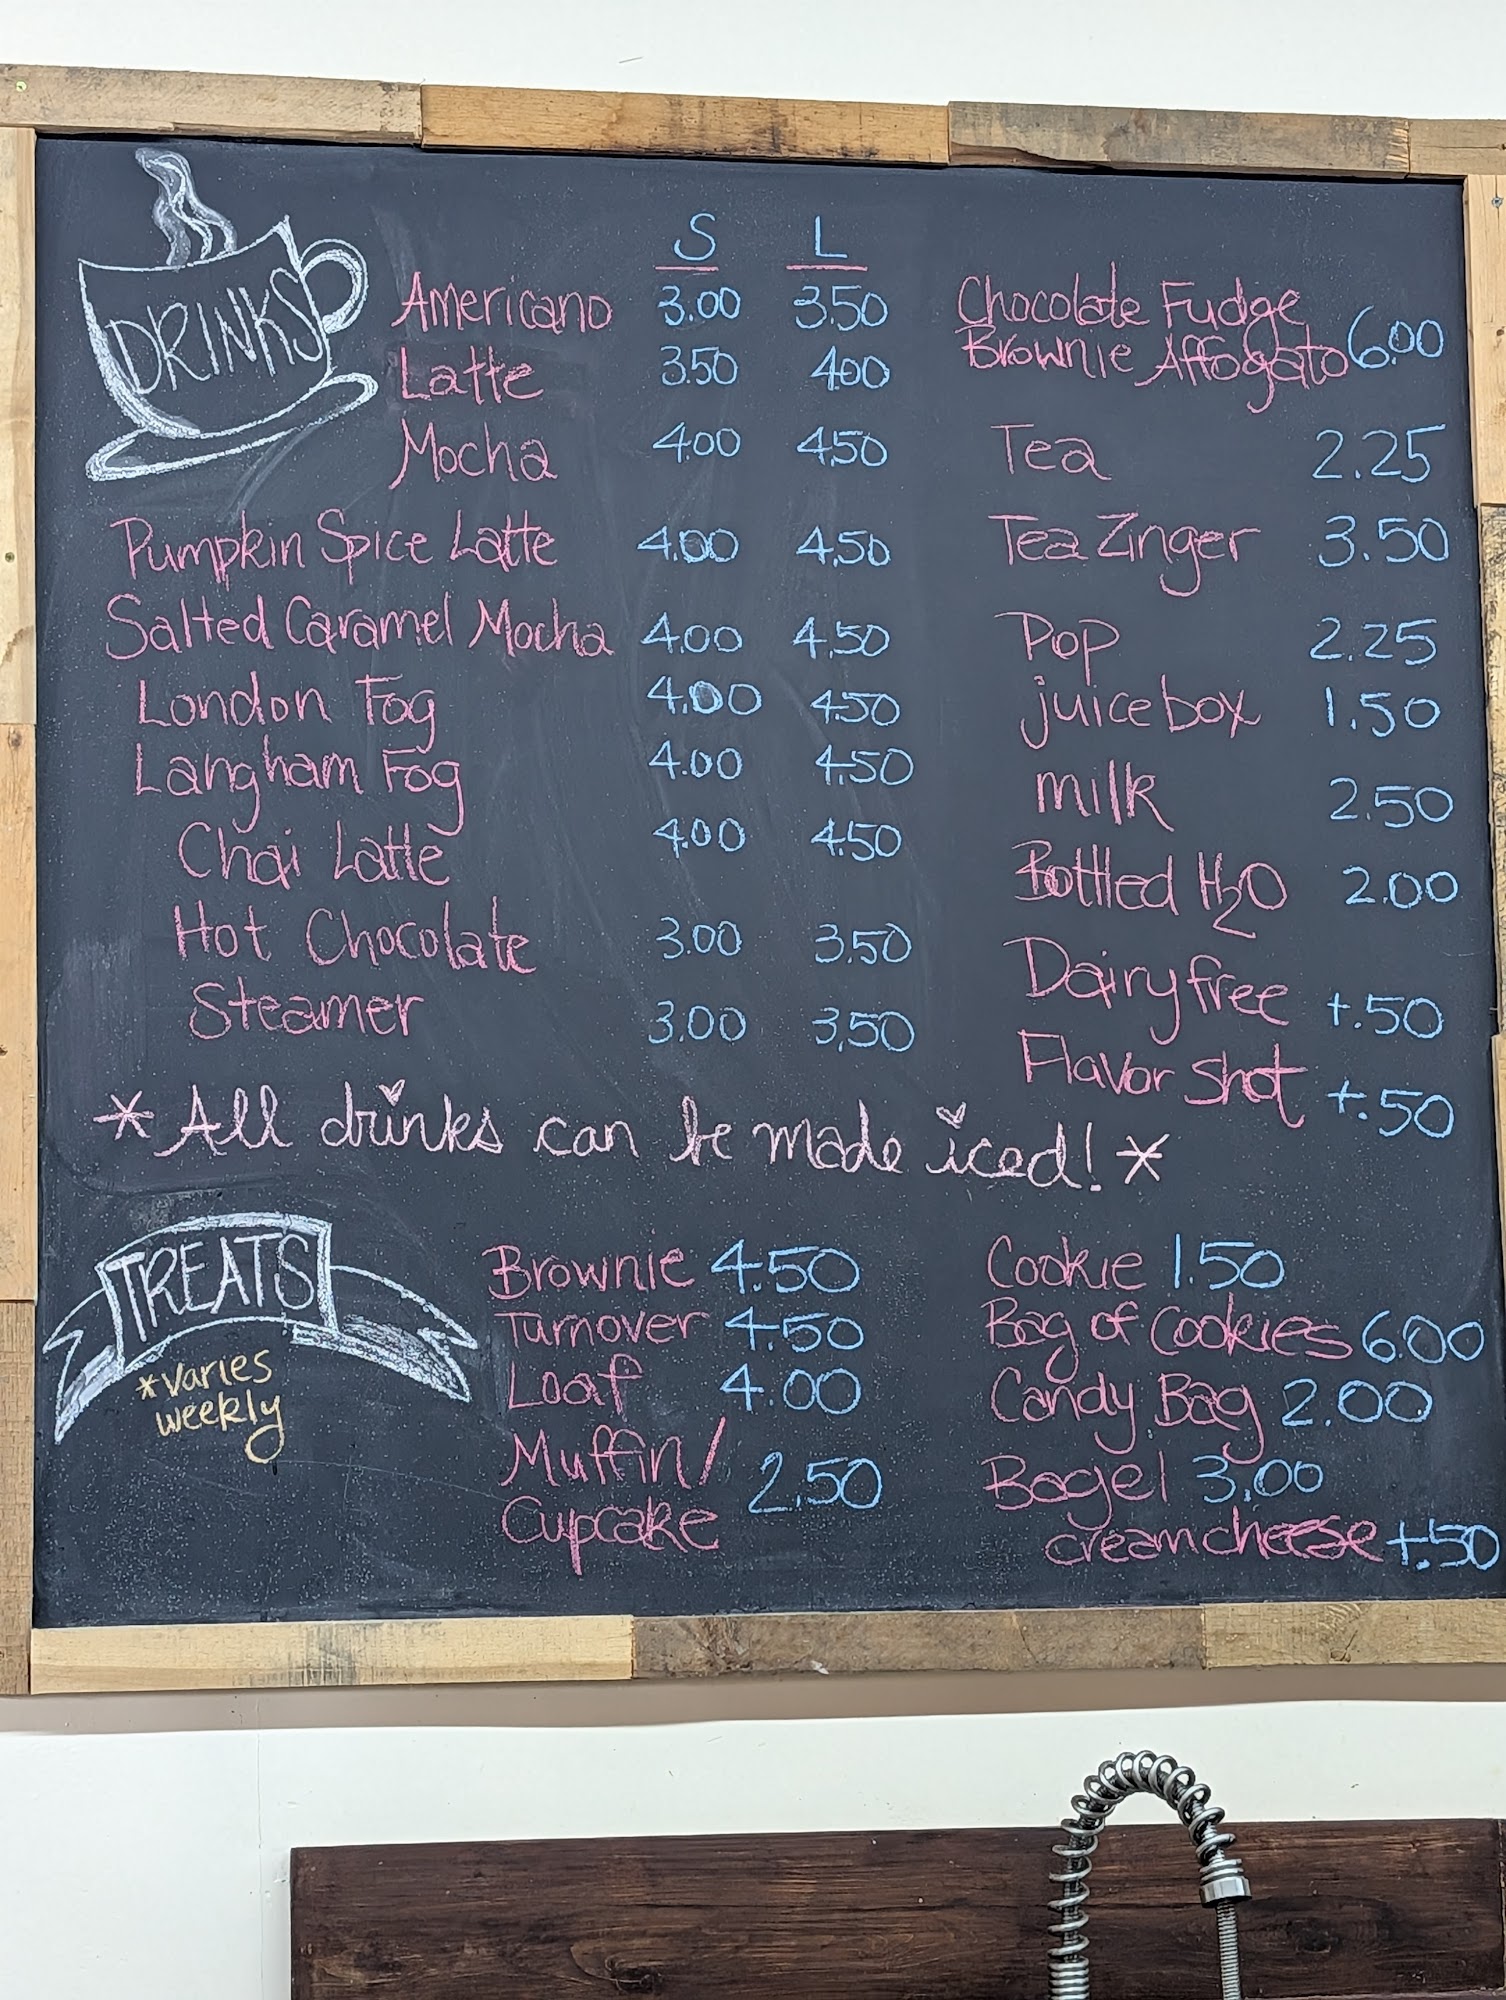 DRINKS
S L
Americano 3.00 3.50
Latte 3.50 4.00
Mocha 4.00 4.50
Pumpkin Spice Latte 4.00 4.50
Salted Caramel Mocha 4.00 4.50
London Fog 4.00 4.50
Langham Fog 4.00 4.50
Chai Latte 4.00 4.50
Hot Chocolate 3.00 3.50
Steamer 3.00 3.50
Chocolate Fudge
Brownie Affogato 6.00
Tea 2.25
Tea Zinger 3.50
Pop 2.25
juice box 1.50
milk 2.50
Bottled H2O 2.00
Dairy free +.50
Flavor shot +.50
*All drinks can be made iced!*
TREATS
*varies
weekly
Brownie 4.50
Turnover 4.50
Loaf 4.00
Muffin/
Cupcake 2.50
Cookie 1.50
Bag of Cookies 6.00
Candy Bag 2.00
Bagel 3.00
cream cheese +.50